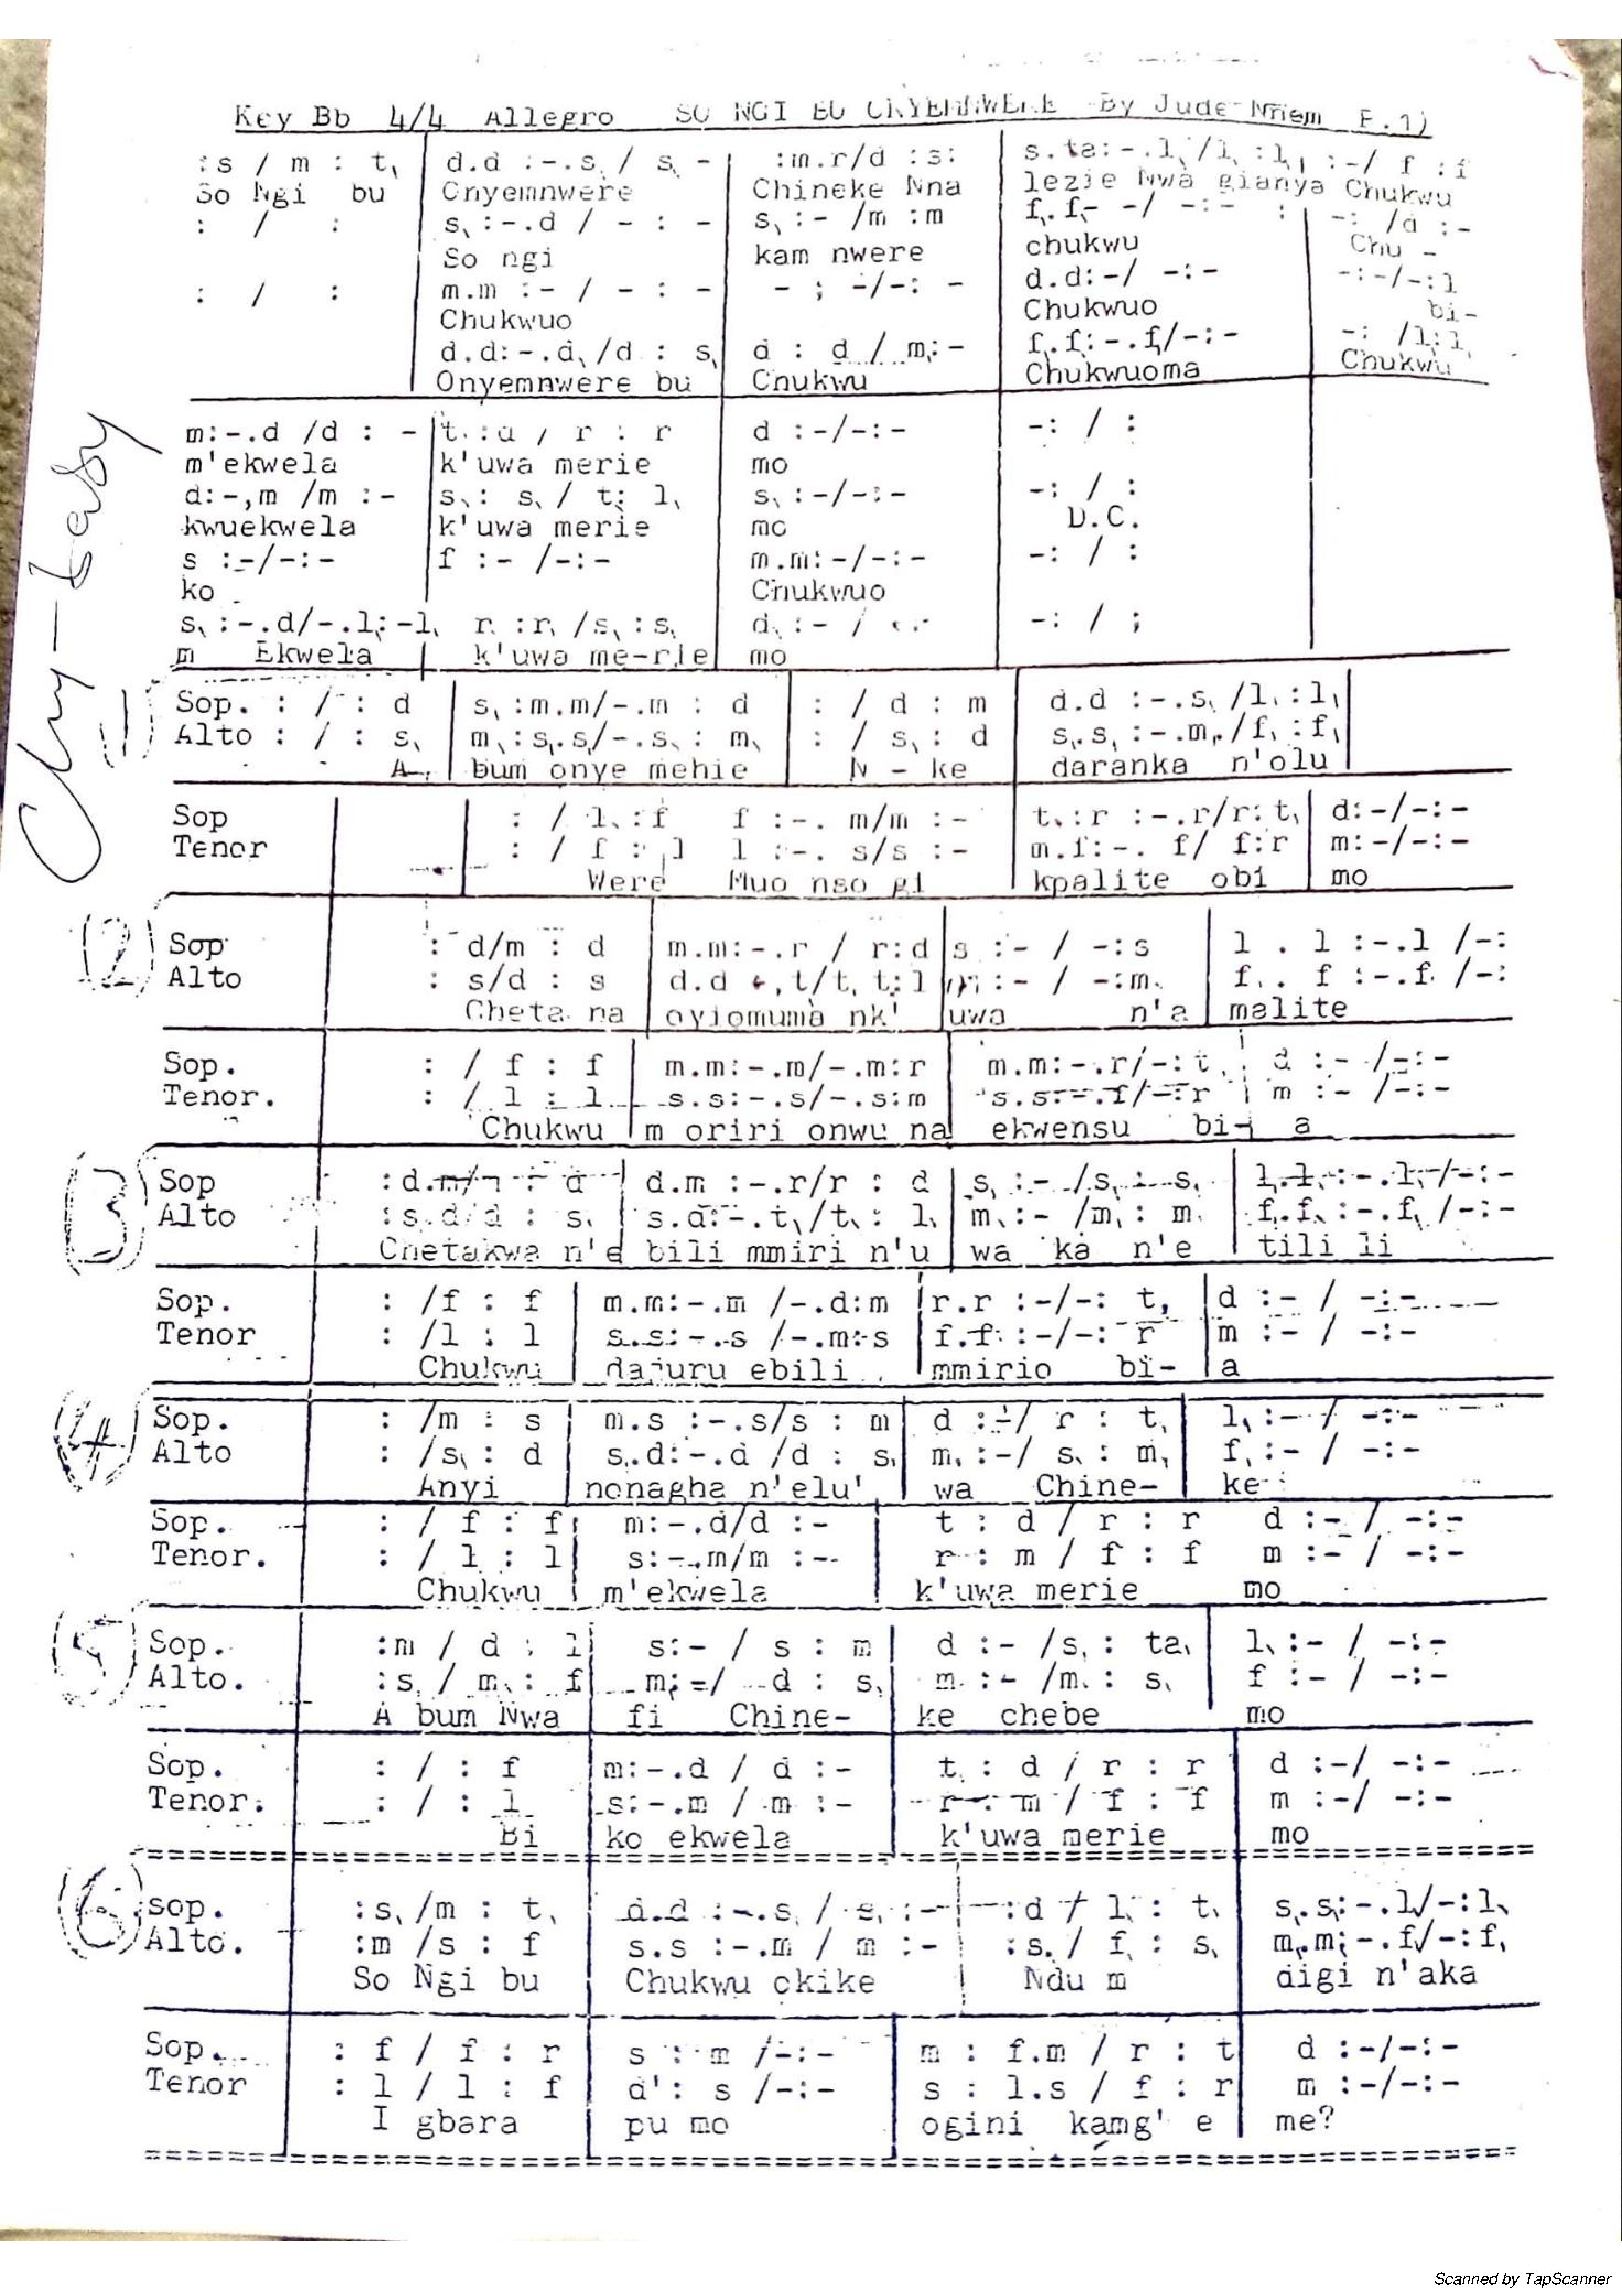 Key Bb 4/4 Allegro SO NGI BU ONYEMNWERE By Jude Nnem F.1)
:s / m : t, d.d :-.s, / s, - :m.r/d :s: s.ta:-.l,/l, :l, :-/ f :f
So Ngi bu Onyemnwere Chineke Nna lezie Nwa gianya Chukwu
: / : s, :-.d / - : - s, :- /m :m f,.f,- -/ -:- : -: /d :-
So ngi kam nwere chukwu Chu -
: / : m.m :- / - : - - ; -/-: - d.d:-/ -:- -:-/-:l
Chukwuo Chukwuo bi-
d.d:-.d,/d : s, d : d / m,:- f,.f,:-.f,/-:- -: /l:l,
Onyemnwere bu Chukwu Chukwuoma Chukwu
Chy-Easy
m:-.d /d : - t,.:d / r : r d :-/-:- -: / :
m'ekwela k'uwa merie mo
d:-,m /m :- s,: s, / t; l, s, :-/-:- -: / :
kwuekwela k'uwa merie mo D.C.
s :-/-:- f :- /-:- m.m:-/-:- -: / :
ko Chukwuo
s, :-.d/-.l;-l, r, :r, /s, :s, d, :- / -: / ;
m Ekwela k'uwa me-rie mo
1
Sop. : / : d s, :m.m/-.m : d : / d : m d.d :-.s, /l, :l,
Alto : / : s, m, :s,.s,/-.s, : m, : / s, : d s,.s, :-.m, /f, :f,
A- bum onye mehie N - ke daranka n'olu
Sop : / l, :f f :-. m/m :- t, :r :-.r/r: t, d:-/-:-
Tenor : / f : l l :-. s/s :- m.f:-. f/ f:r m:-/-:-
Were Muo nso gi kpalite obi mo
(2)
Sop : d/m : d m.m:-.r / r:d s :- / -:s l . l :-.l /-:
Alto : s/d : s d.d +, t/t, t; l m; :- / -:m, f, . f :-.f, /-:
Cheta na oyiomuma nk' uwa n'a malite
Sop. : / f : f m.m:-.m/-.m:r m.m:-.r/-: t, d :- /-:-
Tenor. : / l : l s.s:-.s/-.s:m s.s:-.f/-:r m :- /-:-
Chukwu m oriri onwu na ekwensu bi-i a
(3)
Sop :d.m/m : d d.m :-.r/r : d s, :- /s, : s, l,.l, :-.l,-/-:-
Alto :s,.d/d : s, s.d:-.t,/t, : l, m, :- /m, : m, f,.f, :-.f, /-:-
Chetakwa n'e bili mmiri n'u wa ka n'e tili li
Sop. : /f : f m.m:-.m /-.d:m r.r :-/-: t, d :- / -:-
Tenor : /l : l s.s:-.s /-.m:s f.f :-/-: r m :- / -:-
Chukwu dajuru ebili mmirio bi- a
(4)
Sop. : /m : s m.s :-.s/s : m d :-/ r : t, l, :- / -:-
Alto : /s, : d s,.d:-.d /d : s, m, :-/ s, : m, f, :- / -:-
Anyi nonagha n'elu' wa Chine- ke
Sop. : / f : f m:-.d/d :- t : d / r : r d :- / -:-
Tenor. : / l : l s:-.m/m :-- r : m / f : f m :- / -:-
Chukwu m'ekwela k'uwa merie mo
(5)
Sop. :m / d : l s:- / s : m d :- /s, : ta, l, :- / -:-
Alto. :s, / m, : f m; =/ d : s, m, :- /m, : s, f :- / -:-
A bum Nwa fi Chine- ke chebe mo
Sop. : / : f m:-.d / d :- t, : d / r : r d :-/ -:-
Tenor. : / : l s:-.m / m :- r : m / f : f m :-/ -:-
Bi ko ekwela k'uwa merie mo
(6)
sop. :s, /m : t, d.d :-.s, / s, :- :d / l, : t, s,.s;-.l,/-:l,
Alto. :m /s : f s.s :-.m / m :- :s, / f, : s, m,.m;-.f,/-:f,
So Ngi bu Chukwu okike Ndu m digi n'aka
Sop. : f / f : r s : m /-:- m : f.m / r : t d :-/-:-
Tenor : l / l : f d' : s /-:- s : l.s / f : r m :-/-:-
I gbara pu mo ogini kamg' e me?
Scanned by TapScanner